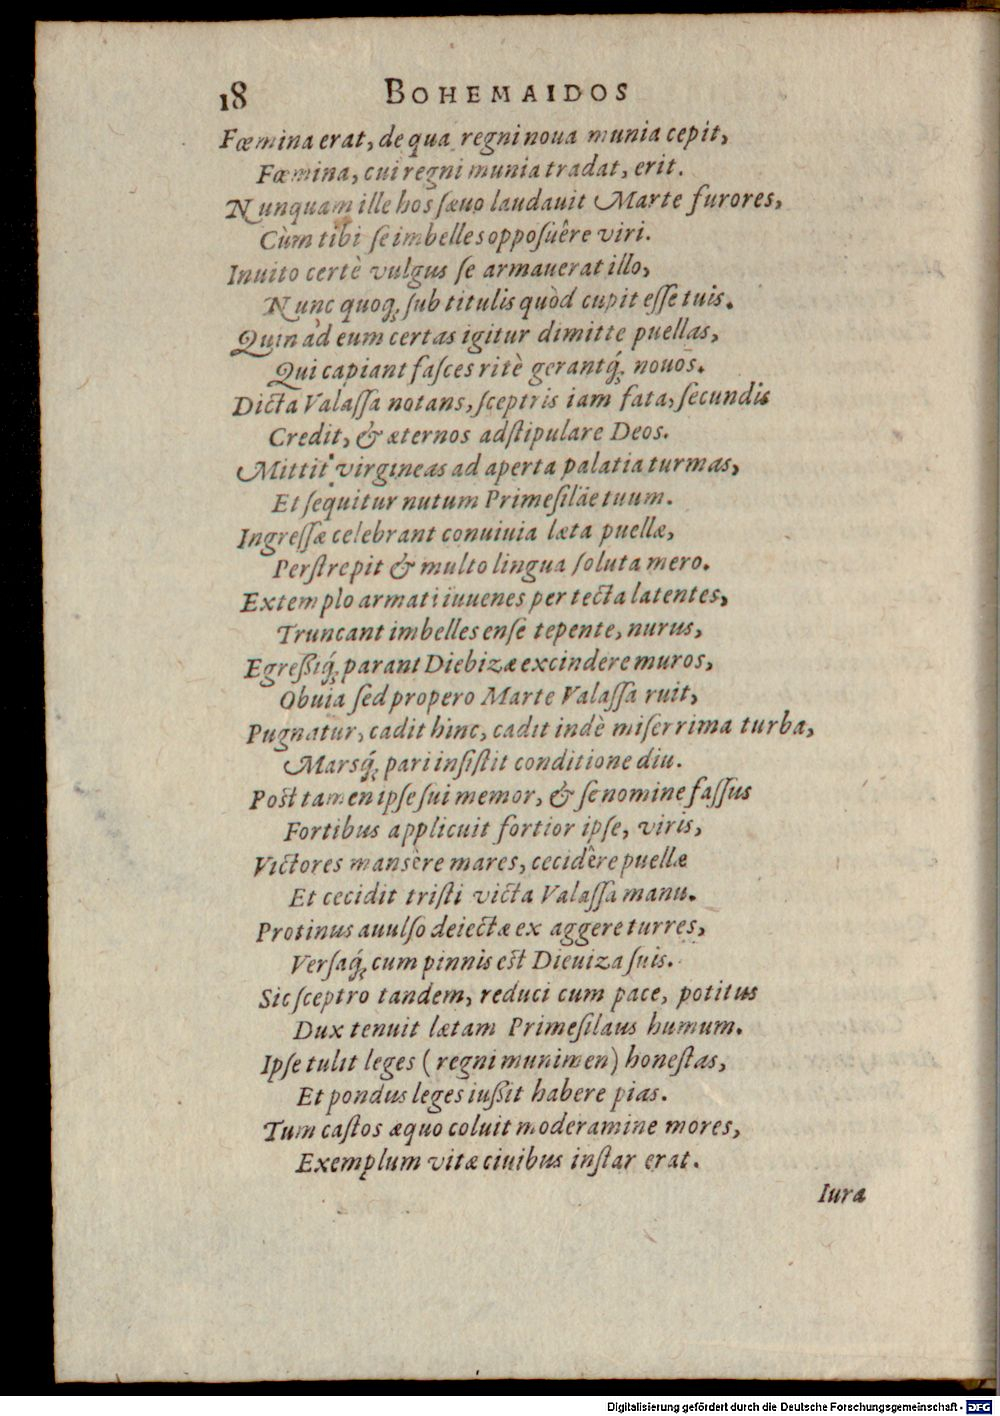 18 BOHEMAIDOS
Fœmina erat, de qua regni noua munia cepit,
Fœmina, cui regni munia tradat, erit.
Nunquam ille hos sæuo laudauit Marte furores,
Cùm tibi se imbelles opposuêre viri.
Inuito certè vulgus se armauerat illo,
Nunc quoq; sub titulis quòd cupit esse tuis.
Quin ad eum certas igitur dimitte puellas,
Qui capiant fasces ritè gerantq́; nouos.
Dicta Valassa notans, sceptris iam fata, secundis
Credit, & æternos adstipulare Deos.
Mittit virgineas ad aperta palatia turmas,
Et sequitur nutum Primesilaë tuum.
Ingressæ celebrant conuiuia læta puellæ,
Perstrepit & multo lingua soluta mero.
Extemplo armati iuuenes per tecta latentes,
Truncant imbelles ense tepente, nurus,
Egreßiq́; parant Diebizæ excindere muros,
Obuia sed propero Marte Valassa ruit,
Pugnatur, cadit hinc, cadit indè miserrima turba,
Marsq́; pari insistit conditione diu.
Post tamen ipse sui memor, & se nomine fassus
Fortibus applicuit fortior ipse, viris,
Victores mansère mares, cecidêre puellæ
Et cecidit tristi victa Valassa manu.
Protinus auulso deiectæ ex aggere turres,
Versaq́; cum pinnis est Dieuiza suis.
Sic sceptro tandem, reduci cum pace, potitus
Dux tenuit lætam Primesilaus humum.
Ipse tulit leges (regni munimen) honestas,
Et pondus leges iußit habere pias.
Tum castos æquo coluit moderamine mores,
Exemplum vitæ ciuibus instar erat.
Iura
Digitalisierung gefördert durch die Deutsche Forschungsgemeinschaft - DFG